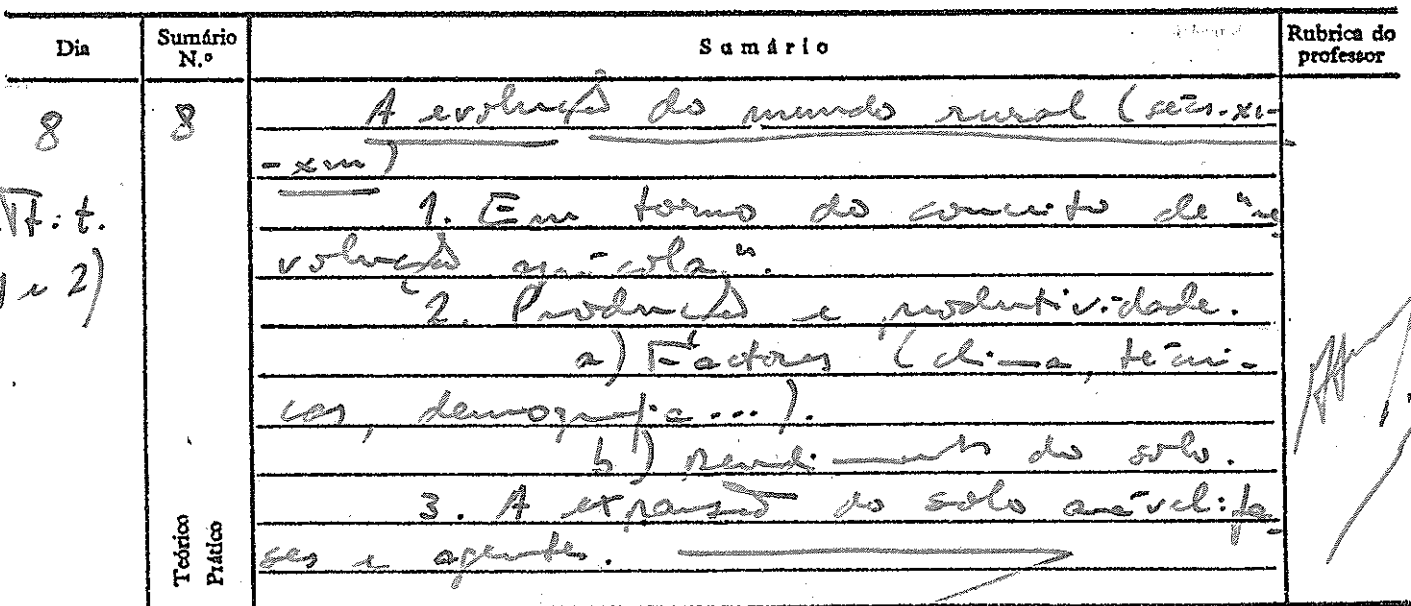 Dia
Sumário N.º
Sumário
Rubrica do professor
8
8
A evolução do mundo rural (sécs. XI-
-XIII)
t.
1 e 2)
1. Em torno do conceito de "re
volução agrícola".
2. Produção e produtividade.
a) Factores (clima, técni-
cas, demografia...).
b) rendimento do solo.
3. A expansão do solo arável: fa-
ses e agentes.
Teórico
Prático